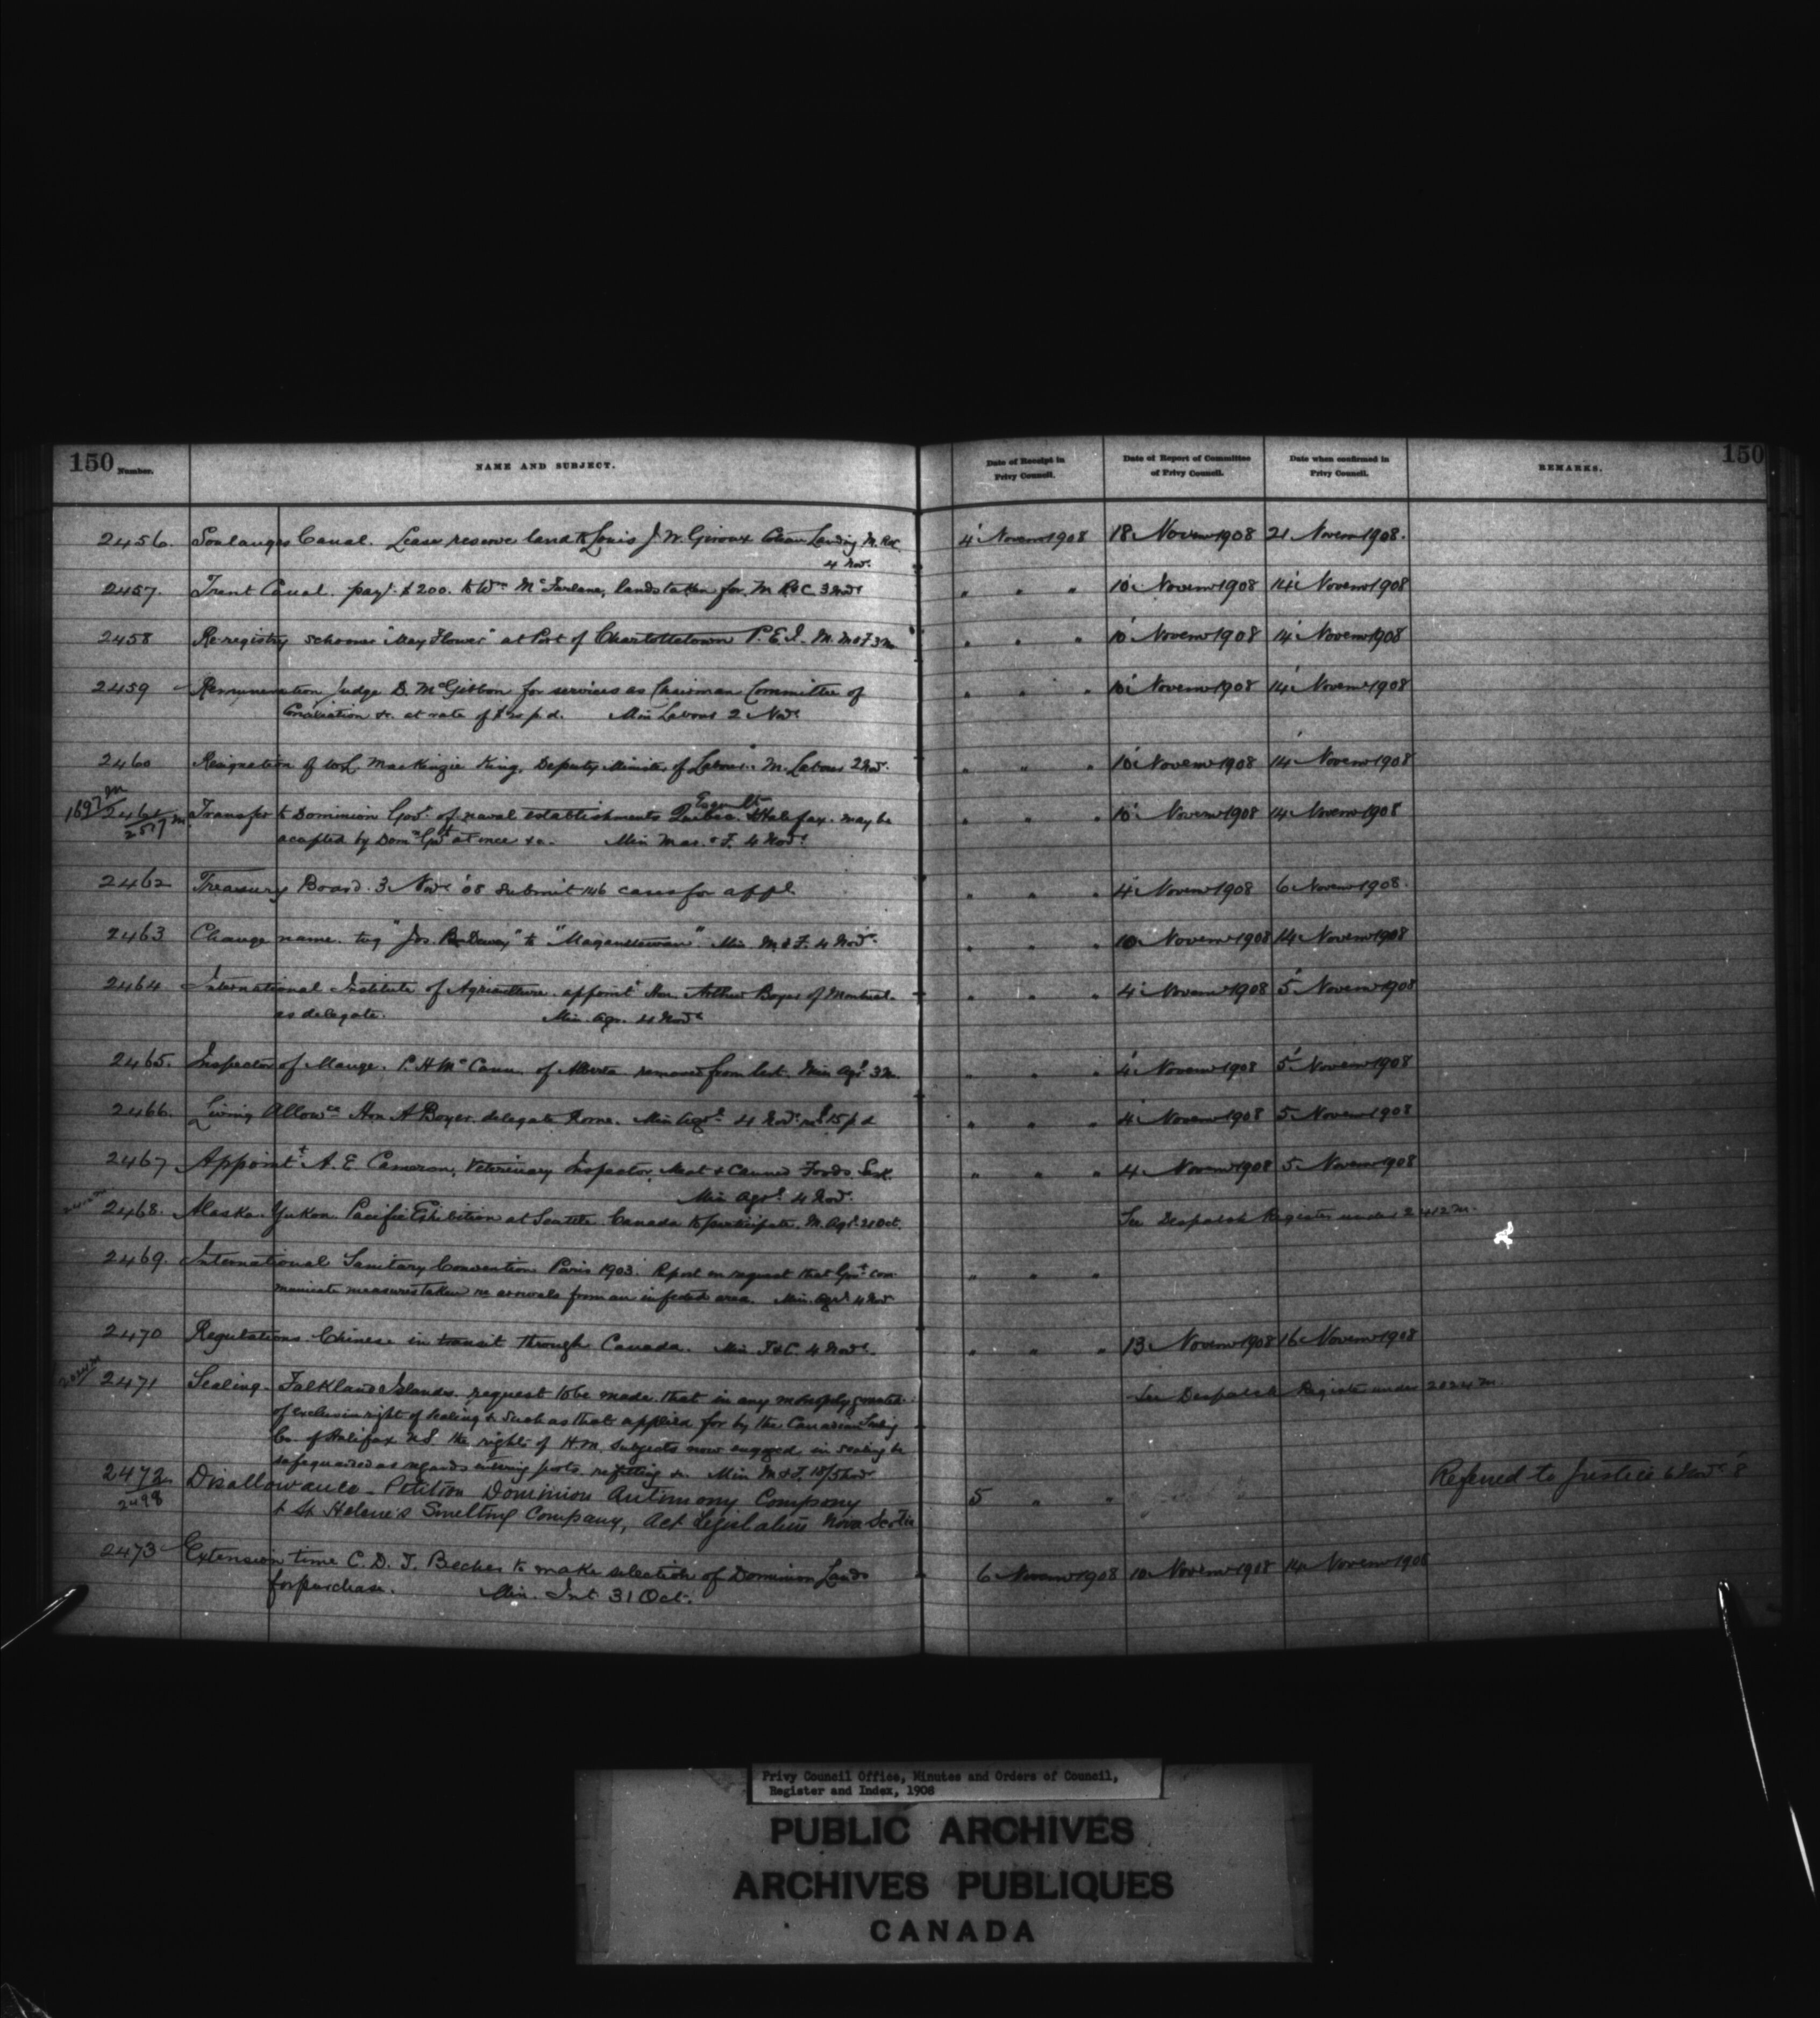 150 Number. NAME AND SUBJECT. Date of Receipt in Privy Council. Date of Report of Committee of Privy Council. Date when confirmed in Privy Council. REMARKS. 150
2456. Soulanges Canal. Lease reserve land to Louis J. W. Giroux Coteau Landing M. R&C 4 Novr. 4 Novem 1908 18 Novem 1908 21 Novem 1908.
2457. Trent Canal. payt. $200. to Wm McFarlane, lands taken for. M R&C 3 Novr " " " 10 Novem 1908 14 Novem 1908
2458 Re-registry schooner "May Flower" at Port of Charlottetown P.E.I. M. M&F 3 N. " " " 10 Novem 1908 14 Novem 1908
2459 Remuneration Judge D. McGibbon for services as Chairman Committee of " " " 10 Novem 1908 14 Novem 1908
Conciliation &c. at rate of $20 p.d. Min Labour 2 Novr
2460 Resignation of W L MacKenzie King, Deputy Minister of Labour. M. Labour 2 Novr. " " " 10 Novem 1908 14 Novem 1908
1697 m 2461 2517 m Transfer to Dominion Govt. of naval establishments Quebec Esqualt & Halifax. may be " " " 10 Novem 1908 14 Novem 1908
accepted by Domn Govt at once &c. Min Mar. & F. 4 Novr.
2462 Treasury Board. 3 Novr '08 submit 146 cases for appl. " " " 4 Novem 1908 6 Novem 1908.
2463 Change name. tug "Jos. Dewey" to "Maganettewan". Min M & F. 4 Novr. " " " 10 Novem 1908 14 Novem 1908
2464 International Institute of Agriculture. appoint Hon. Arthur Boyer of Montreal " " " 4 Novem 1908 5 Novem 1908
as delegate. Min. Agr. 4 Novr
2465. Inspector of Mange. P. H McCann of Alberta removed from list. Min Agr. 3 N. " " " 4 Novem 1908 5 Novem 1908
2466. Living Allowce Hon A Boyer. delegate Rome. Min Agr. 4 Novr. $15 p d " " " 4 Novem 1908 5 Novem 1908
2467 Appointt A. E. Cameron, Veterinary Inspector, Meat & Canned Foods. " " " 4 Novem 1908 5 Novem 1908
Min Agr. 4 Novr.
2468. Alaska Yukon Pacific Exhibition at Seattle. Canada to participate. M. Agr. 21 Oct. See Despatch Register under 2412 m.
2469. International Sanitary Convention Paris 1903. Report on request that Govt com " " "
municate measures taken re arrivals from an infected area. Min. Agr. 4 Nov
2470 Regulations. Chinese in transit through Canada. Min T&C 4 Novr. " " " 13 Novem 1908 16 Novem 1908
2471 Sealing. Falkland Islands. request to be made that in any monopoly granted See Despatch Register under 2024 m
of exclusive right of sealing & such as that applied for by the Canadian Sealing
Co. of Halifax N.S. the rights of H.M. subjects now engaged in sealing be
safeguarded as regards entering ports. refitting &c. Min M&F. 18/5 Novr
2472 2498 Disallowance - Petition Dominion Antimony Company 5 " " Referred to Justice 6 Novr '8
& St Helene's Smelting Company, Act Legislature Nova Scotia
2473 Extension time C. D. T. Becher to make selection of Dominion Lands 6 Novem 1908 10 Novem 1908 14 Novem 1908
for purchase. Min. Int 31 Oct.
Privy Council Office, Minutes and Orders of Council,
Register and Index, 1908
PUBLIC ARCHIVES
ARCHIVES PUBLIQUES
CANADA